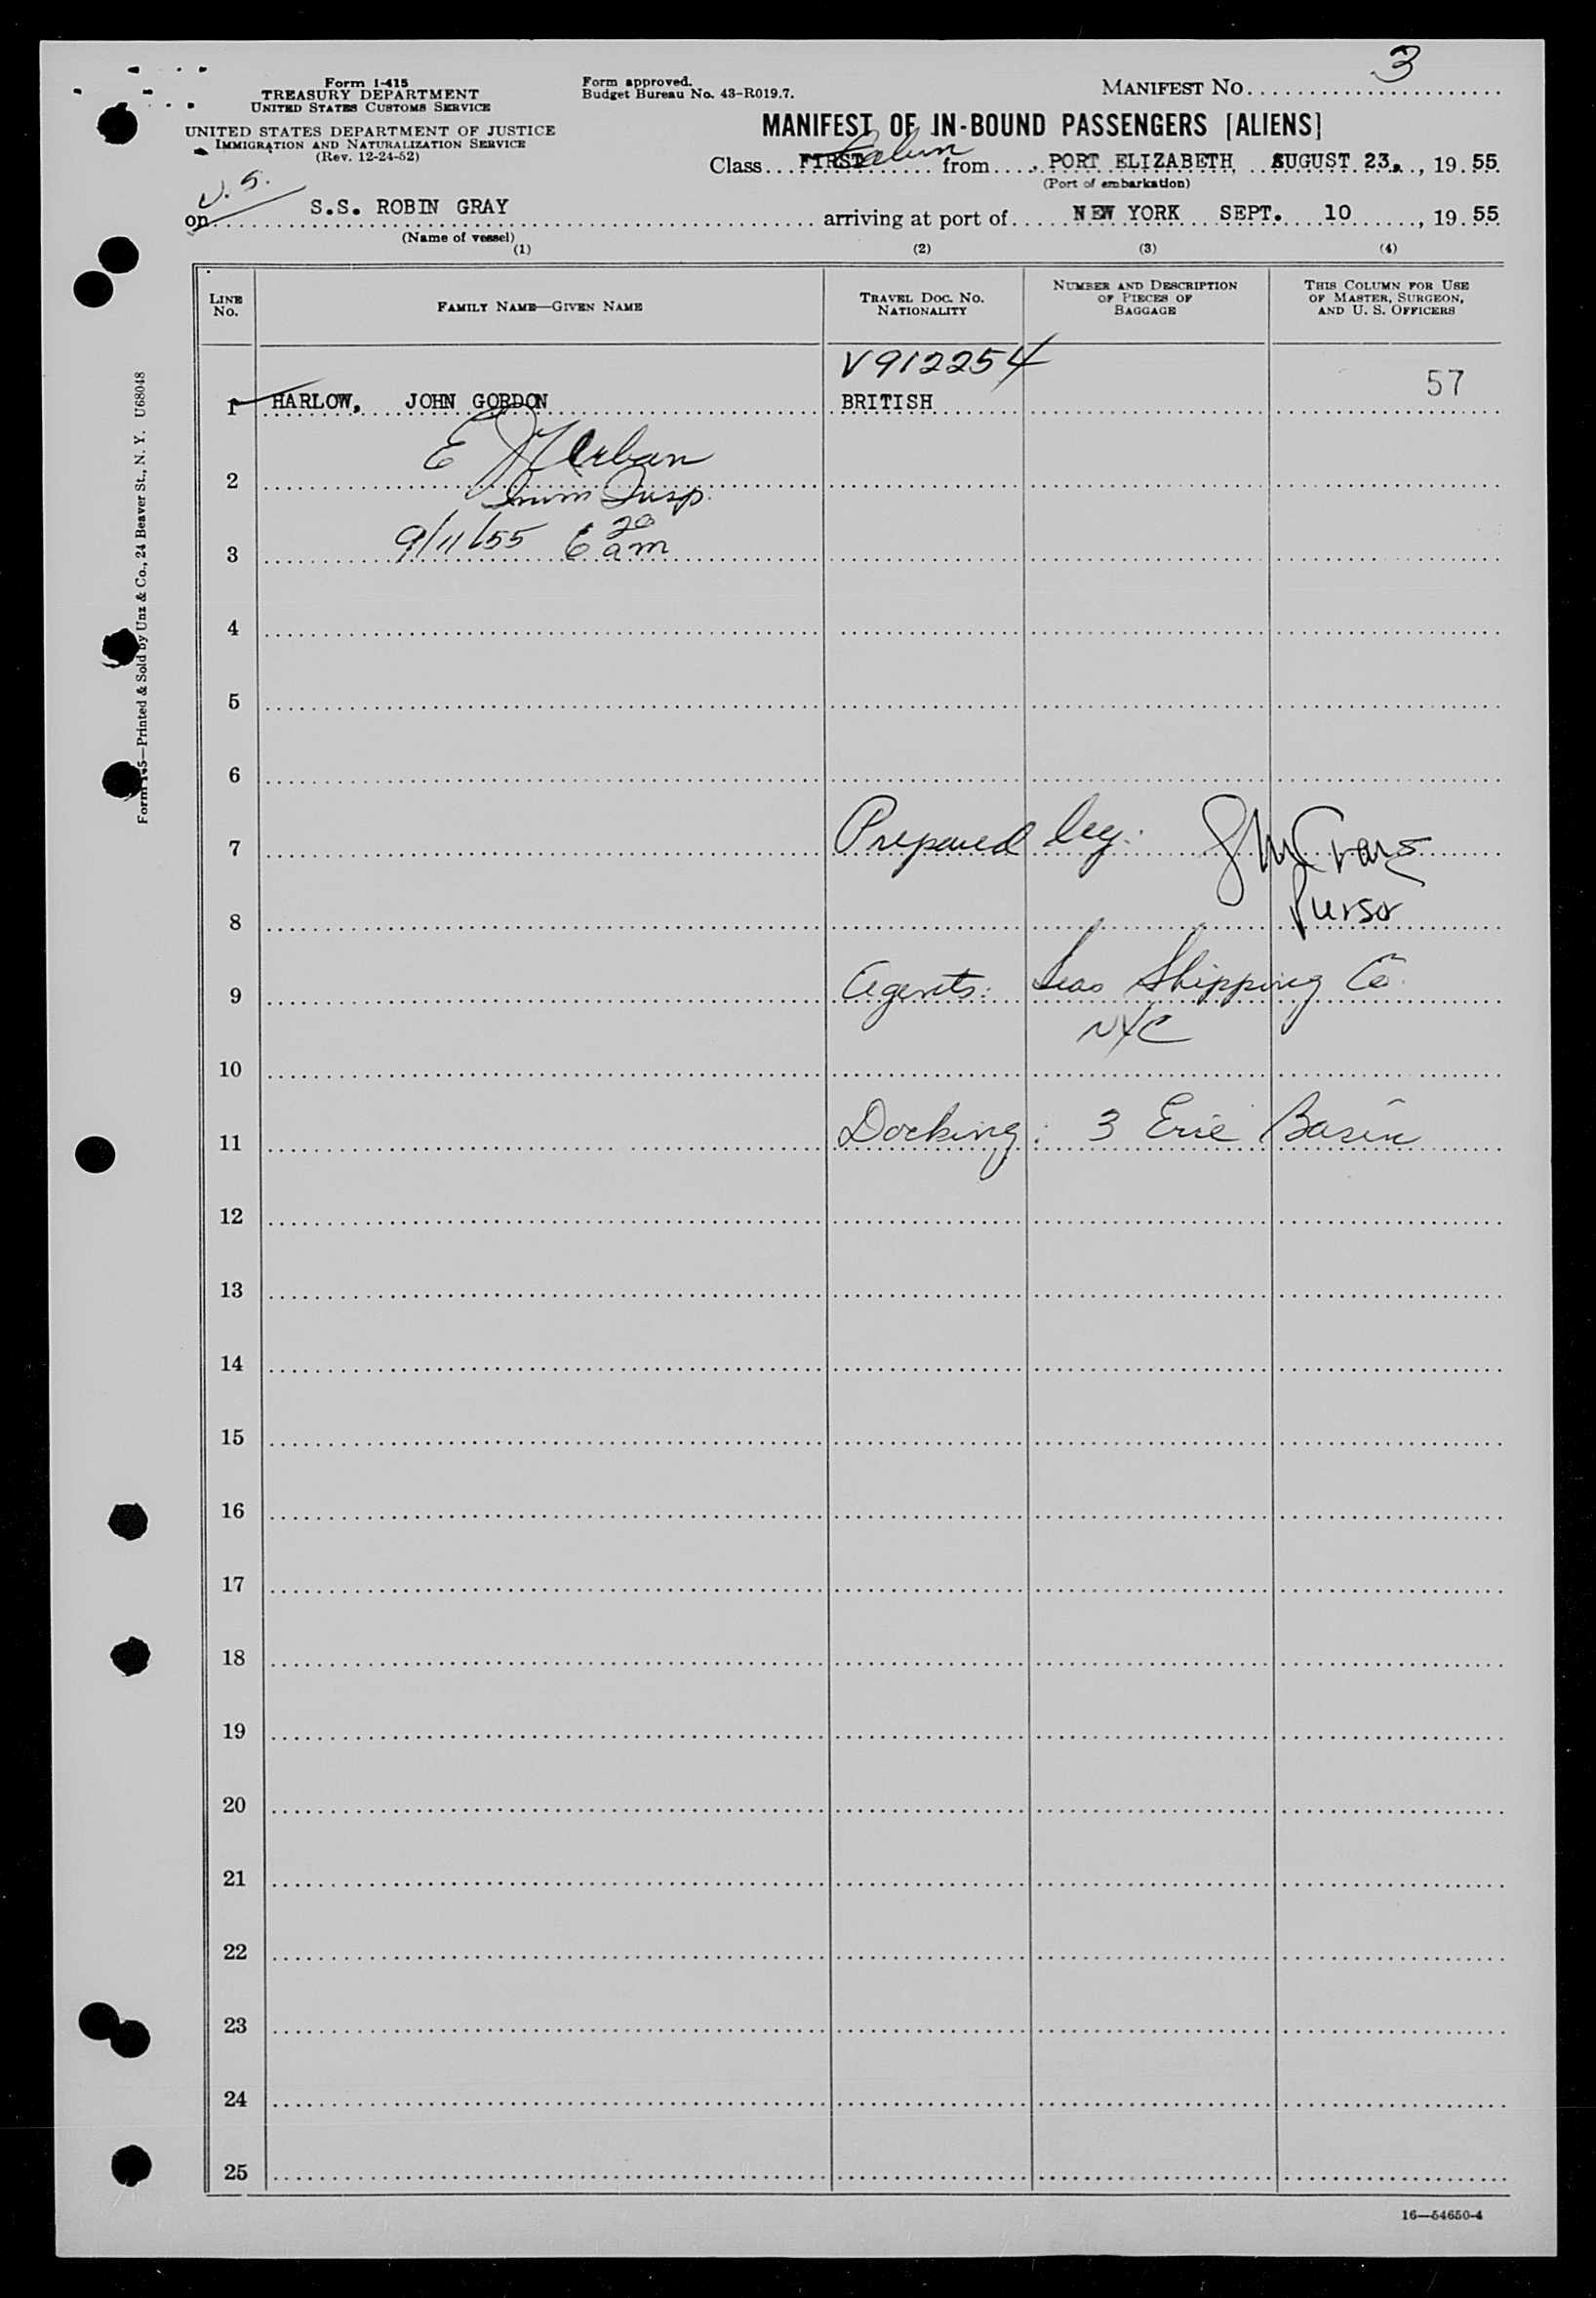 3
Form I-415
TREASURY DEPARTMENT
UNITED STATES CUSTOMS SERVICE
Form approved.
Budget Bureau No. 43-R019.7.
MANIFEST No.
UNITED STATES DEPARTMENT OF JUSTICE
IMMIGRATION AND NATURALIZATION SERVICE
(Rev. 12-24-52)
MANIFEST OF IN-BOUND PASSENGERS [ALIENS]
Cabin
Class FIRST from PORT ELIZABETH, AUGUST 23, 19 55
(Port of embarkation)
U.S.
on S.S. ROBIN GRAY arriving at port of NEW YORK SEPT. 10, 19 55
(Name of vessel)
(1) (2) (3) (4)
LINE No. FAMILY NAME—GIVEN NAME TRAVEL DOC. NO. NATIONALITY NUMBER AND DESCRIPTION OF PIECES OF BAGGAGE THIS COLUMN FOR USE OF MASTER, SURGEON, AND U. S. OFFICERS
V912254
57
1 HARLOW, JOHN GORDON BRITISH
E Urban
2
Imm Insp.
3 9/11/55 6 20 am
4
5
6
7 Prepared by:
Purser
8
9 Agents: Seas Shipping Co.
NYC
10
11 Docking: 3 Erie Basin
12
13
14
15
16
17
18
19
20
21
22
23
24
25
16—54650-4
Form I-415—Printed & Sold by Unz & Co., 24 Beaver St., N. Y. U68048